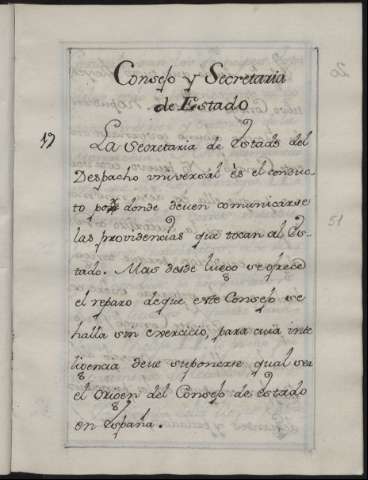 Consejo y Secretaria
de Estado
19
La secretaria de estado del
Despacho vniversal ès el conduc-
to por donde deven comunicarse
las providencias que tocan al Es-
tado. Mas desde luego se ofrece
el reparo deque este Consejo se
halla sin exercicio, para cuia inte
ligencia deve suponerse qual sea
el origen del Consejo de estado
en españa.
51
20